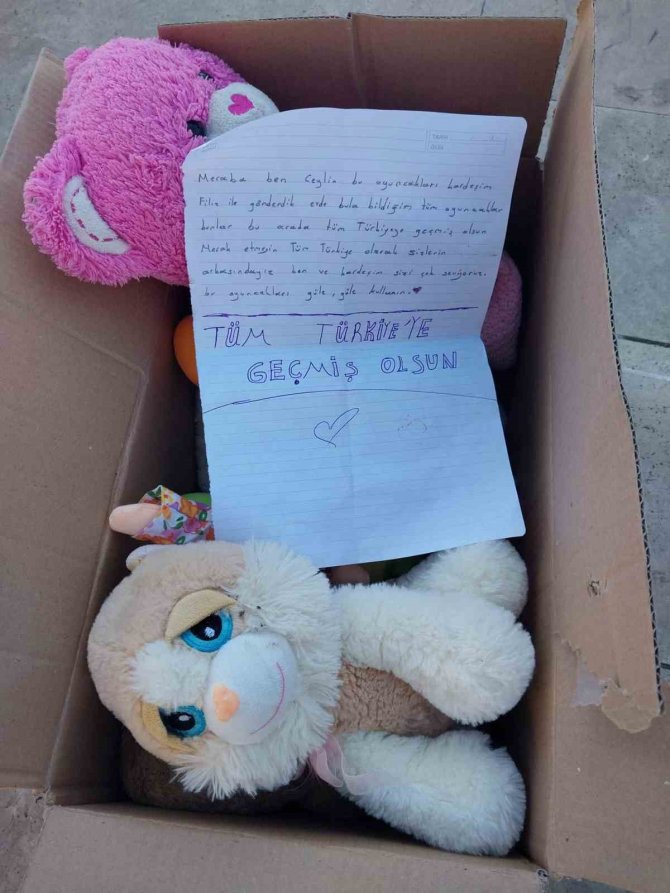 Meraba ben Ceylin bu oyuncakları kardeşim
Filiz ile gönderdik evde bula bildiğim tüm oyuncaklar
bunlar bu arada tüm Türkiyeye geçmiş olsun
Merak etmeyin Tüm Türkiye olarak sizlerin
arkasındayız ben ve kardeşim sizi çok seviyoruz.
bu oyuncakları güle, güle kullanın.
TÜM TÜRKİYE'YE
GEÇMİŞ OLSUN